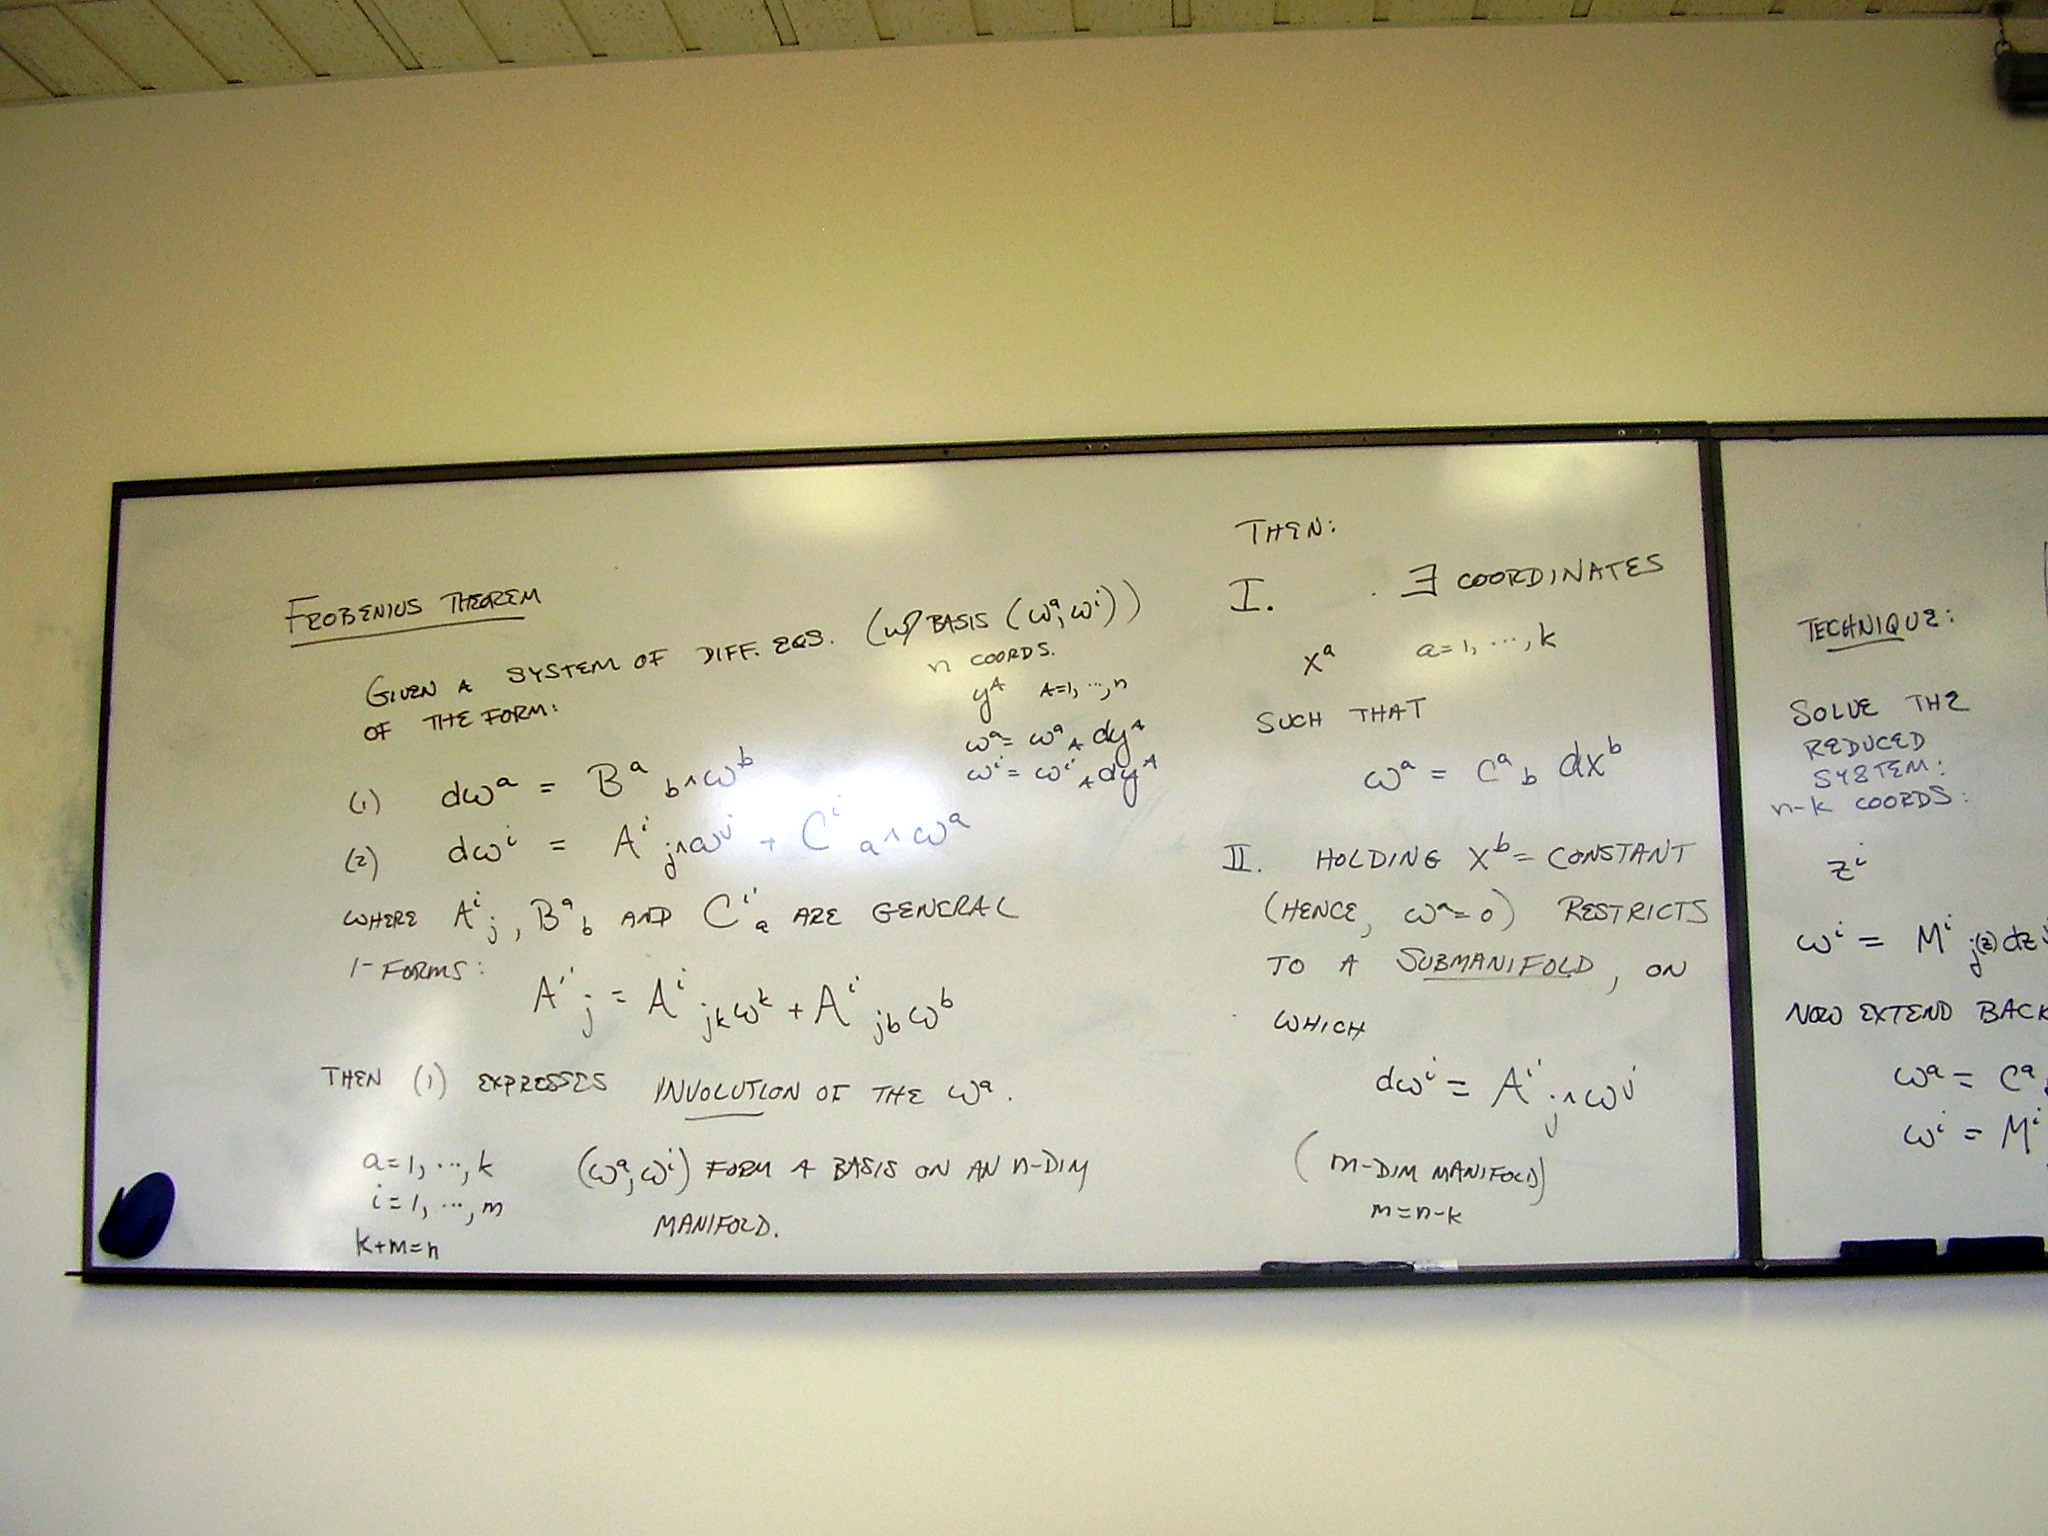 FROBENIUS THEOREM
GIVEN A SYSTEM OF DIFF. EQS. (W/ BASIS (ωᵃ, ωⁱ))
OF THE FORM:
n COORDS.
yᴬ A=1, ⋯, n
ωᵃ = ωᵃ_A dyᴬ
ωⁱ = ωⁱ_A dyᴬ
(1) dωᵃ = Bᵃ_b ∧ ωᵇ
(2) dωⁱ = Aⁱ_j ∧ ωʲ + Cⁱ_a ∧ ωᵃ
WHERE Aⁱ_j, Bᵃ_b AND Cⁱ_a ARE GENERAL
1-FORMS:
Aⁱ_j = Aⁱ_jk ωᵏ + Aⁱ_jb ωᵇ
THEN (1) EXPRESSES INVOLUTION OF THE ωᵃ.
a=1, ⋯, k
i=1, ⋯, m
k+m=n
(ωᵃ, ωⁱ) FORM A BASIS ON AN n-DIM
MANIFOLD.
THEN:
I. ∃ COORDINATES
xᵃ a=1, ⋯, k
SUCH THAT
ωᵃ = Cᵃ_b dxᵇ
II. HOLDING xᵇ = CONSTANT
(HENCE, ωᵃ=0) RESTRICTS
TO A SUBMANIFOLD, ON
WHICH
dωⁱ = Aⁱ_j ∧ ωʲ
(m-DIM MANIFOLD)
m=n-k
TECHNIQUE:
SOLVE THE
REDUCED
SYSTEM:
n-k COORDS:
zⁱ
ωⁱ = Mⁱ_j(z) dzʲ
NOW EXTEND BACK
ωᵃ = Cᵃ
ωⁱ = Mⁱ